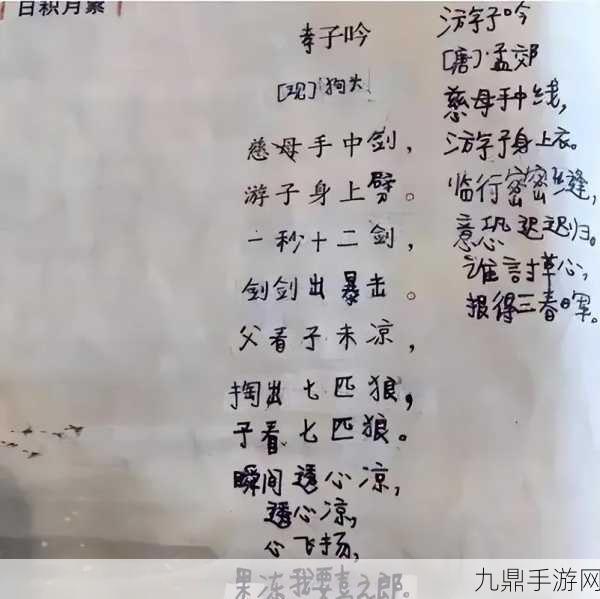 日积月累
孝子吟
[现]狗头
慈母手中剑，
游子身上劈。
一秒十二剑，
剑剑出暴击。
父看子未凉，
掏出七匹狼，
子看七匹狼。
瞬间透心凉，
透心凉，
心飞扬，
果冻我要喜之郎。
游子吟
[唐]孟郊
慈母手中线，
游子身上衣。
临行密密缝，
意恐迟迟归。
谁言寸草心，
报得三春晖。
九鼎手游网